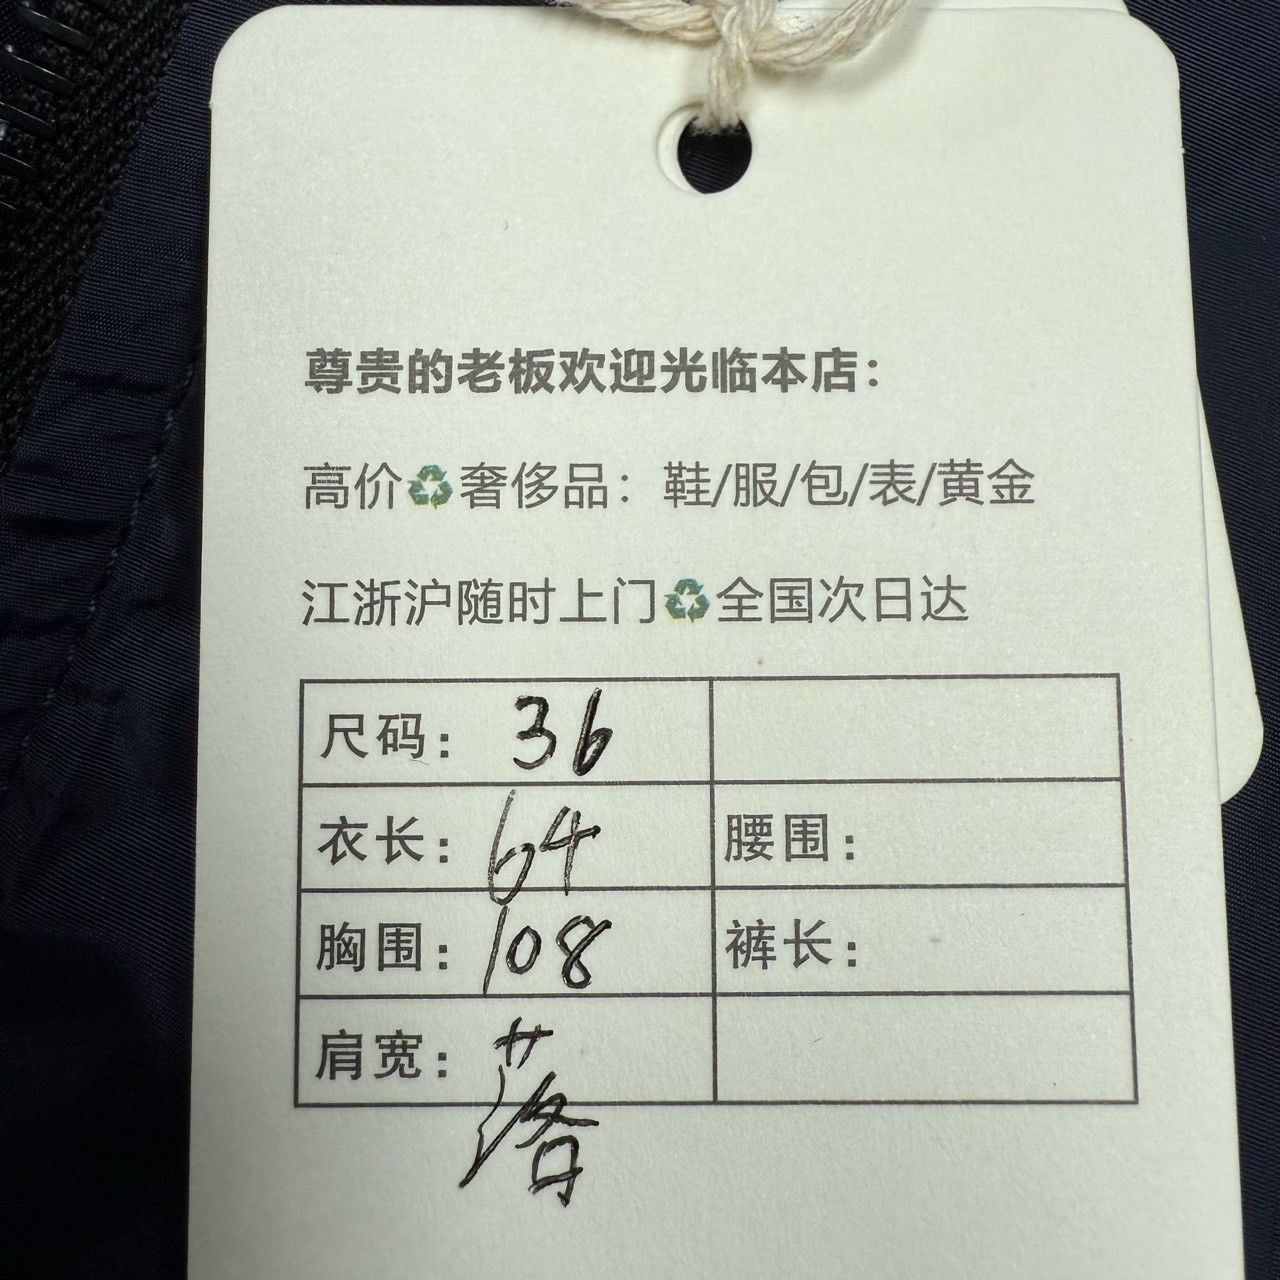 尊贵的老板欢迎光临本店：
高价♻️奢侈品：鞋/服/包/表/黄金
江浙沪随时上门♻️全国次日达
尺码： 36
衣长： 64 腰围：
胸围： 108 裤长：
肩宽： 落